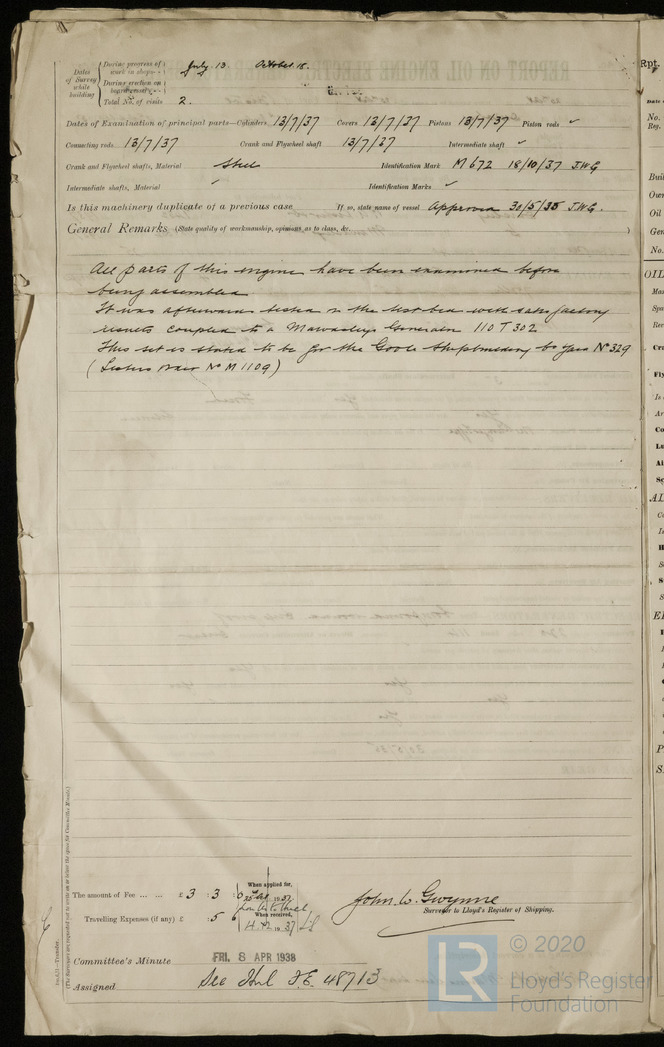 Dates of Survey while building
During progress of work in shops - - July 13. October 18.
During erection on board vessel - - -
Total No. of visits 2.
Dates of Examination of principal parts—Cylinders 13/7/37 Covers 13/7/37 Pistons 13/7/37 Piston rods ✓
Connecting rods 13/7/37 Crank and Flywheel shaft 13/7/37 Intermediate shaft ✓
Crank and Flywheel shafts, Material Steel Identification Mark M672 18/10/37 JWG
Intermediate shafts, Material ✓ Identification Marks ✓
Is this machinery duplicate of a previous case If so, state name of vessel Approved 30/5/35 JWG.
General Remarks (State quality of workmanship, opinions as to class, &c. )
All parts of this engine have been examined before
being assembled
It was afterwards tested on the test bed with satisfactory
results coupled to a Mawdsleys Generator 110 T 302
This set is stated to be for the Goole Shipbuilding Co Yard No 329
(Listers No M 1109)
The amount of Fee ... ... £ 3 : 3 : 0
When applied for,
1937
Travelling Expenses (if any) £ : 5
When received,
1937
John W. Gwynne
Surveyor to Lloyd's Register of Shipping.
Committee's Minute FRI. 8 APR 1938
Assigned See Hul F.E. 48713
(The Surveyors are requested not to write on or below the space for Committee's Minute.)
Rpt.
No.
Reg.
Oil
No.
© 2020
LR
Lloyd's Register
Foundation